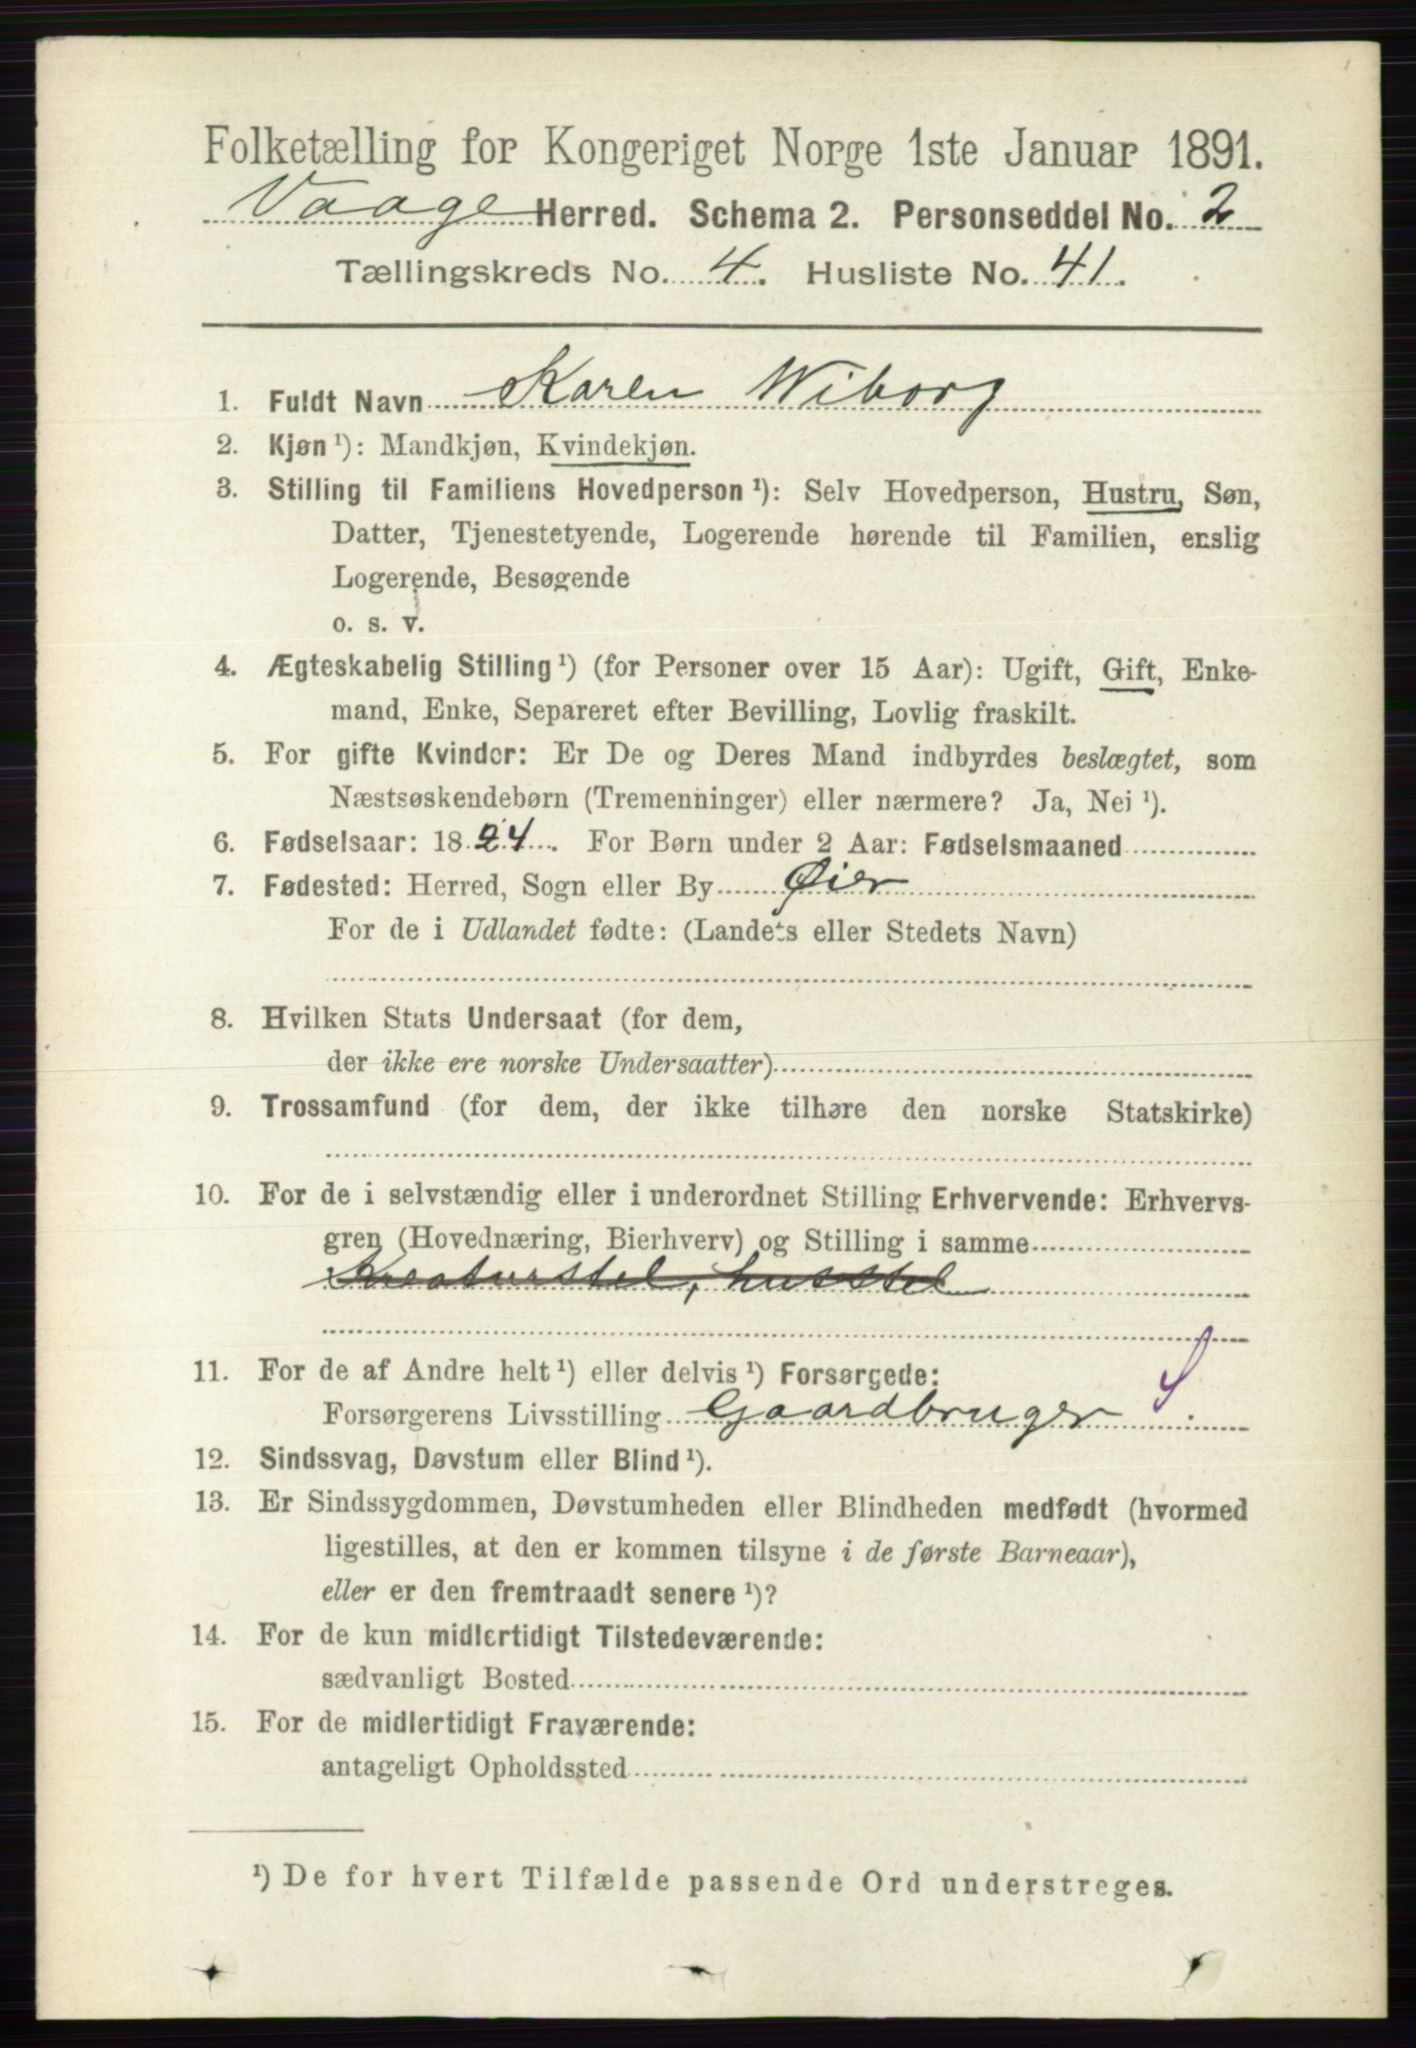 Folketælling for Kongeriget Norge 1ste Januar 1891.
Vaage Herred. Schema 2. Personseddel No. 2
Tællingskreds No. 4. Husliste No. 41.
1. Fuldt Navn Karen Wiborg
2. Kjøn ¹): Mandkjøn, Kvindekjøn.
3. Stilling til Familiens Hovedperson ¹): Selv Hovedperson, Hustru, Søn,
Datter, Tjenestetyende, Logerende hørende til Familien, enslig
Logerende, Besøgende
o. s. v.
4. Ægteskabelig Stilling ¹) (for Personer over 15 Aar): Ugift, Gift, Enke-
mand, Enke, Separeret efter Bevilling, Lovlig fraskilt.
5. For gifte Kvinder: Er De og Deres Mand indbyrdes beslægtet, som
Næstsøskendebørn (Tremenninger) eller nærmere? Ja, Nei ¹).
6. Fødselsaar: 1824. For Børn under 2 Aar: Fødselsmaaned
7. Fødested: Herred, Sogn eller By Øier
For de i Udlandet fødte: (Landets eller Stedets Navn)
8. Hvilken Stats Undersaat (for dem,
der ikke ere norske Undersaatter)
9. Trossamfund (for dem, der ikke tilhøre den norske Statskirke)
10. For de i selvstændig eller i underordnet Stilling Erhvervende: Erhvervs-
gren (Hovednæring, Bierhverv) og Stilling i samme
Kreaturstel, husstel
11. For de af Andre helt ¹) eller delvis ¹) Forsørgede: S
Forsørgerens Livsstilling Gaardbruger.
12. Sindssvag, Døvstum eller Blind ¹).
13. Er Sindssygdommen, Døvstumheden eller Blindheden medfødt (hvormed
ligestilles, at den er kommen tilsyne i de første Barneaar),
eller er den fremtraadt senere ¹)?
14. For de kun midlertidigt Tilstedeværende:
sædvanligt Bosted
15. For de midlertidigt Fraværende:
antageligt Opholdssted
¹) De for hvert Tilfælde passende Ord understreges.